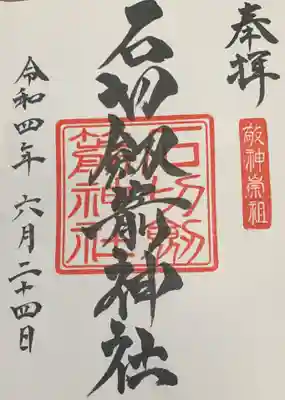 奉拝
敬神崇祖
石切劔箭神社
石切劔
箭神社
令和四年六月二十四日